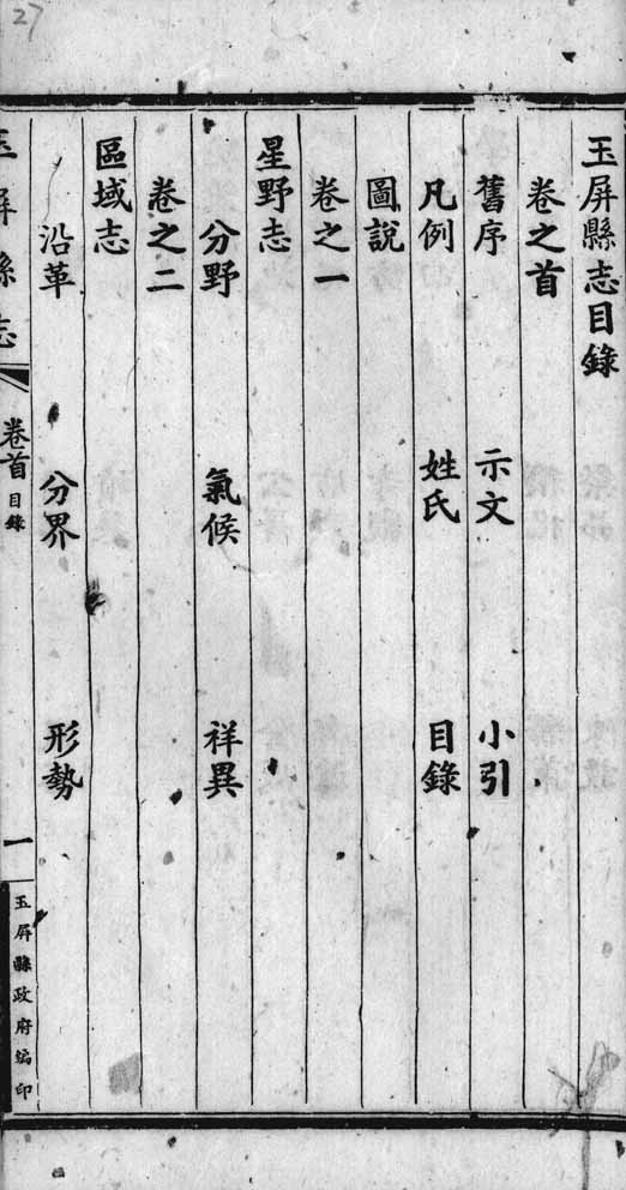 玉屏縣志目錄
卷之首
舊序 示文 小引
凡例 姓氏 目錄
圖說
卷之一
星野志
分野 氣候 祥異
卷之二
區域志
沿革 分界 形勢
玉屏縣志 卷首 目錄 一 玉屏縣政府編印
27